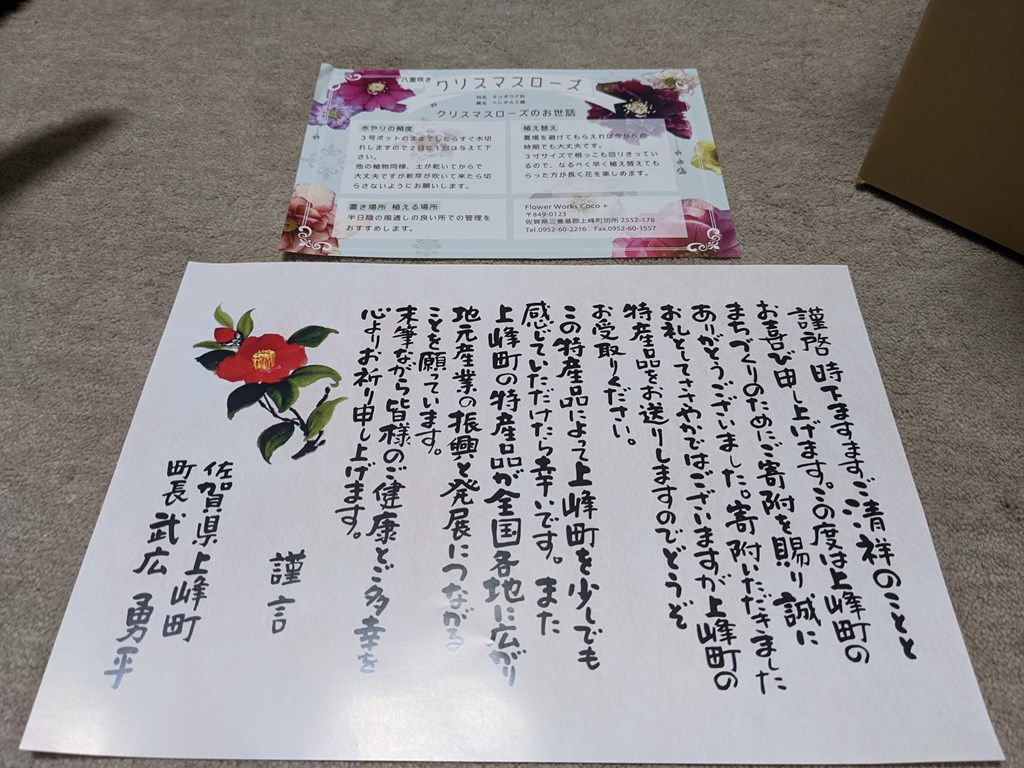 八重咲き クリスマスローズ
科名 キンポウゲ科
属名 ヘレボルス属
クリスマスローズのお世話
水やりの頻度
3号ポットのままでしたらすぐ水切
れしますので2日に1回は与えて下
さい。
他の植物同様、土が乾いてからで
大丈夫ですが新芽が吹いて来たら切
らさないようにお願いします。
植え替え
夏場を避けてもらえれば今からの
時期でも大丈夫です。
3寸サイズで根っこも回りきってい
るので、なるべく早く植え替えても
らった方が長く花を楽しめます。
置き場所 植える場所
半日陰の風通しの良い所での管理を
おすすめします。
Flower Works Coco +
〒849-0123
佐賀県三養基郡上峰町坊所 2552-178
Tel.0952-60-2216 Fax.0952-60-1557
謹啓 時下ますますご清祥のことと
お喜び申し上げます。この度は上峰町の
まちづくりのためにご寄附を賜り誠に
ありがとうございました。寄附いただきました
お礼としてささやかではございますが上峰町の
特産品をお送りしますのでどうぞ
お受取りください。
この特産品によって上峰町を少しでも
感じていただけたら幸いです。また
上峰町の特産品が全国各地に広がり
地元産業の振興と発展につながる
ことを願っています。
末筆ながら皆様のご健康とご多幸を
心よりお祈り申し上げます。
謹言
佐賀県上峰町
町長 武広 勇平